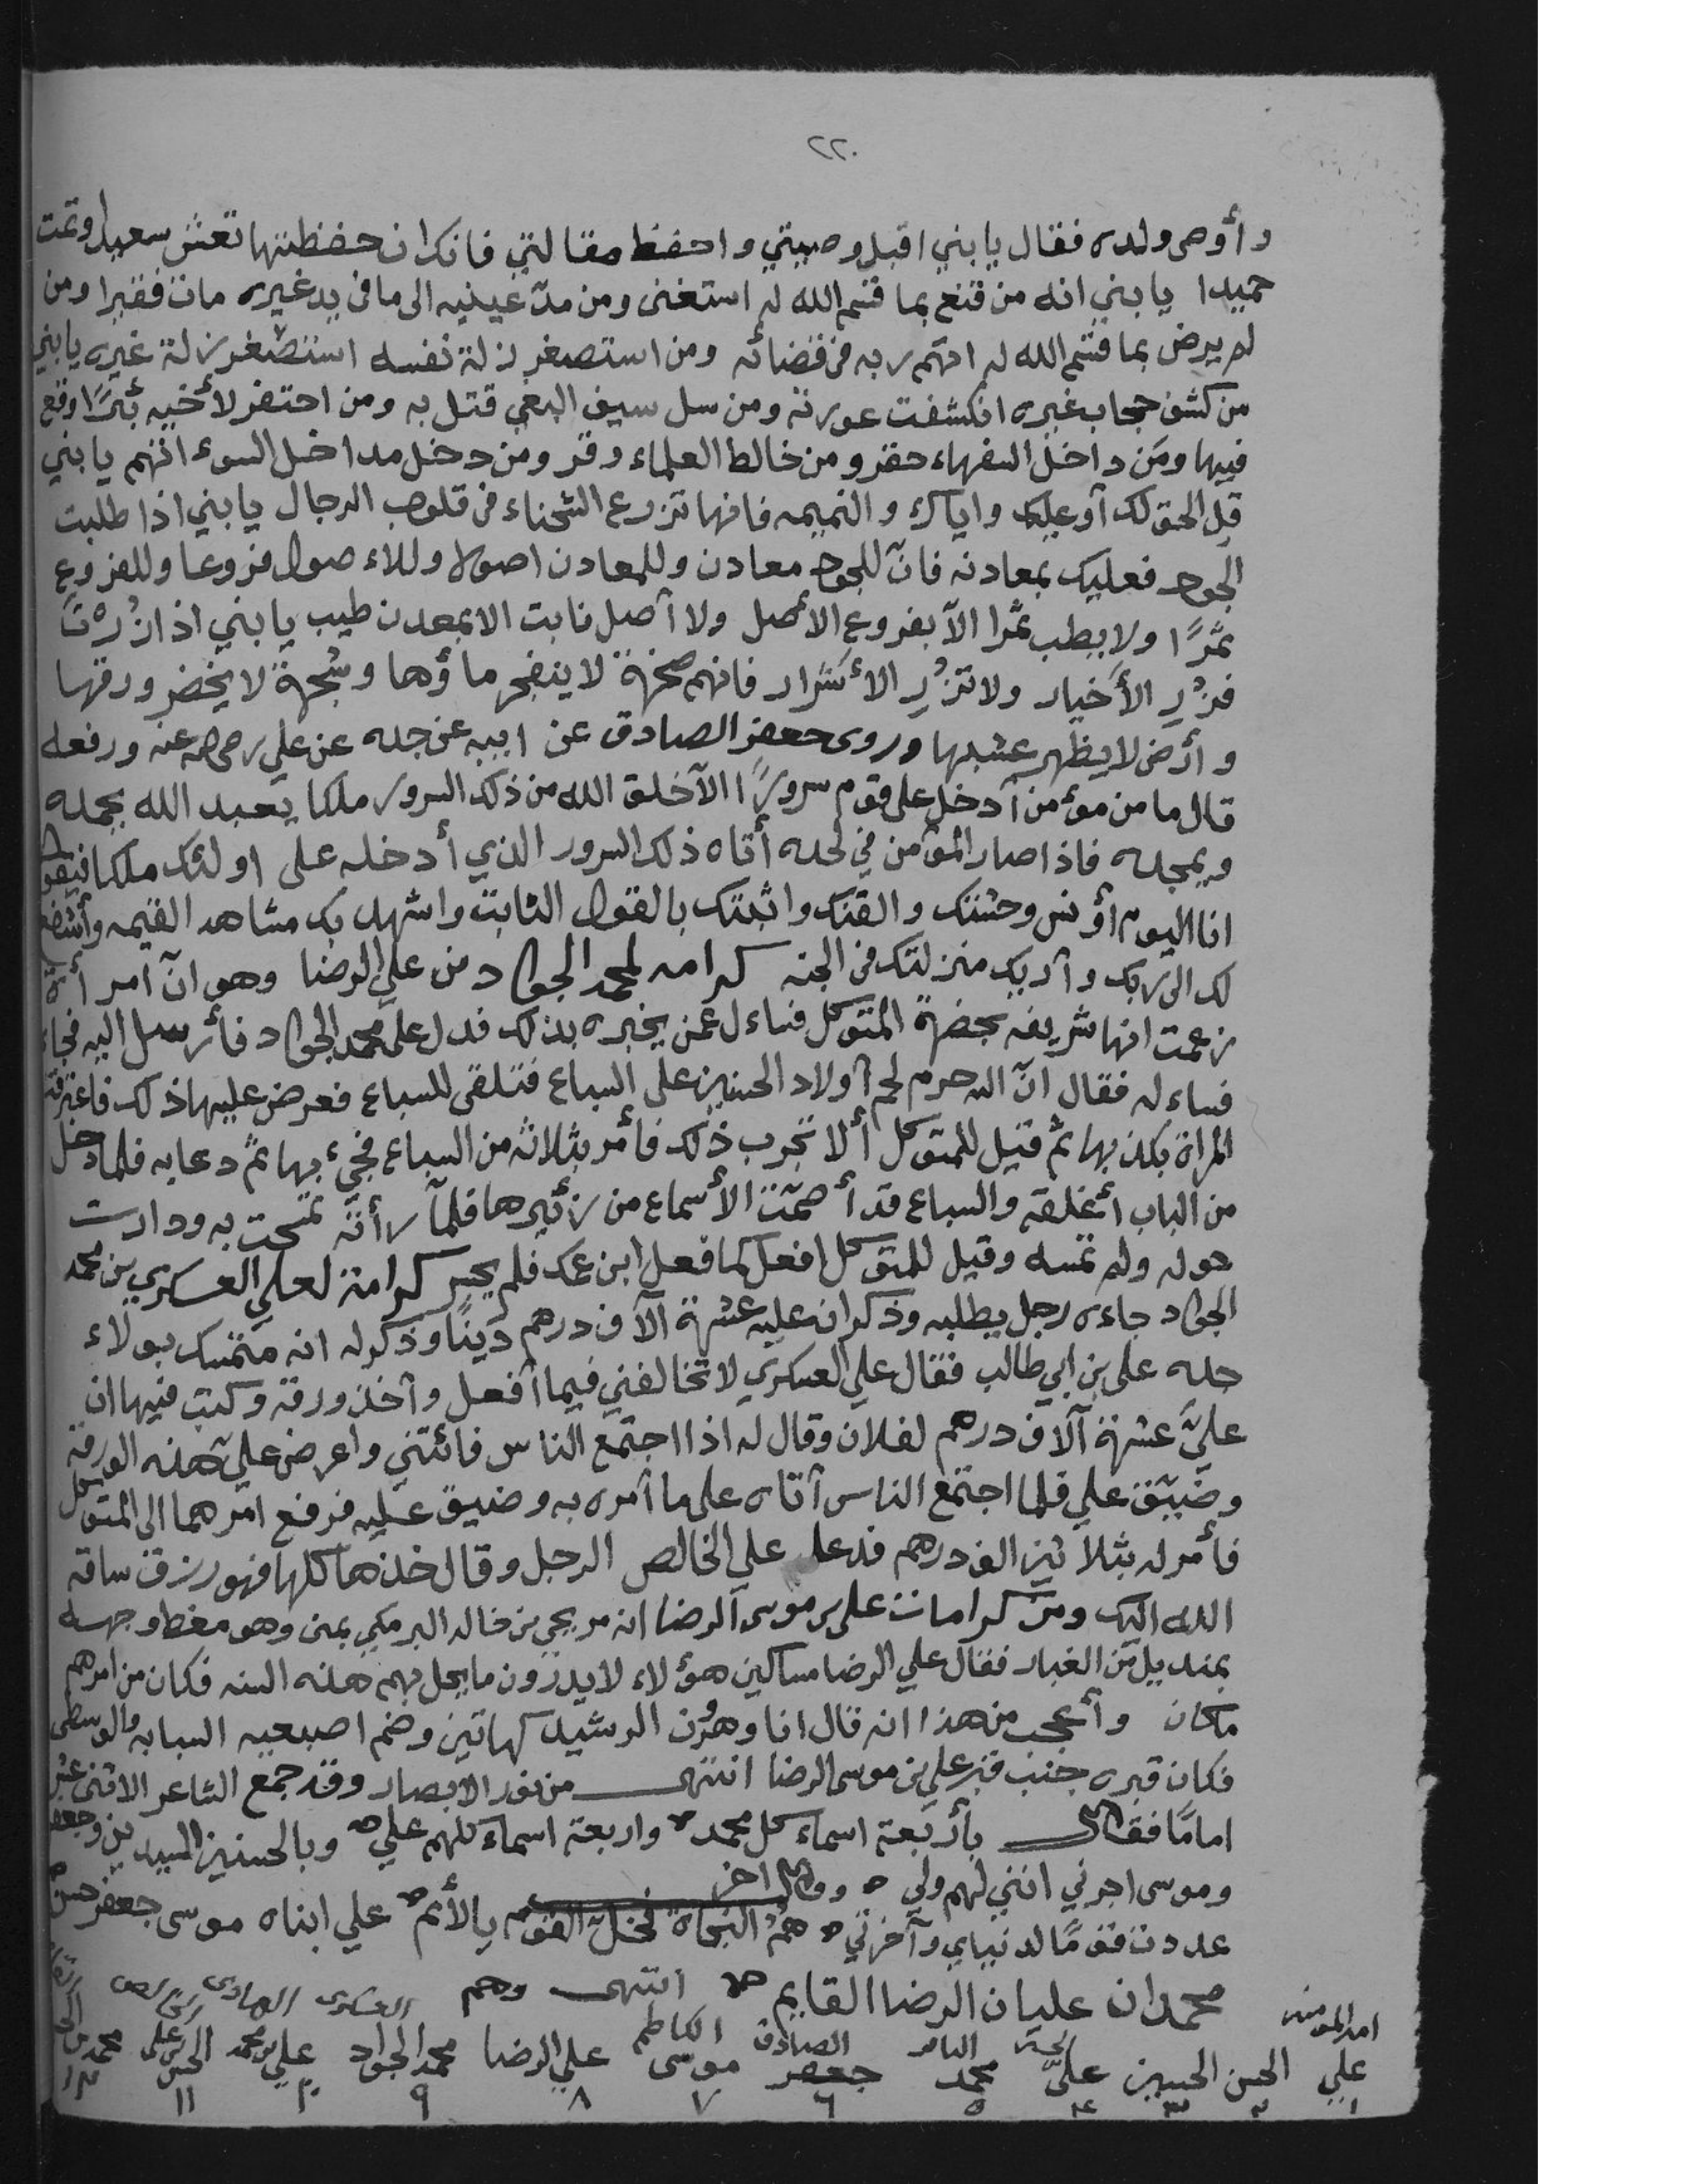 ٢٢٠
وأوصى ولده فقال يا بني اقبل وصيتي واحفظ مقالتي فانك ان حفظتها تعش سعيدا وتمت
حميدا يا بني انه من قنع بما قسم الله له استغنى ومن مدّ عينيه الى ما في يد غيره مات فقيرا ومن
لم يرض بما قسم الله له اتهم ربه في قضائه ومن استصغر زلة نفسه استصغر زلة غيره يا بني
من كشف حجاب غيره انكشفت عورته ومن سل سيف البغي قتل به ومن احتفر لأخيه بئرًا وقع
فيها ومن داخل السفهاء حقر ومن خالط العلماء وقر ومن دخل مداخل السوء اتهم يا بني
قل الحق لك أو عليك واياك والنميمه فانها تزرع الشحناء في قلوب الرجال يا بني اذا طلبت
الجود فعليك بمعادنه فان للجود معادن وللمعادن اصولا وللاءصول فروعا وللفروع
ثمرًا ولا يطب ثمرا الا بفروع الأصل ولا أصل ثابت الا بمعدن طيب يا بني اذا زُرْتَ
فزُرِ الأخيار ولا تزُرِ الأشرار فانهم صخرة لا ينفجر ماؤها وشجرة لا يخضر ورقها
وأرض لا يظهر عشبها وروى جعفر الصادق عن ابيه عن جده عن علي رضى الله عنه ورفعه
قال ما من مؤمن أدخل على قوم سرورًا الا خلق الله من ذلك السرور ملكا يعبد الله بحمده
ويمجده فاذا صار المؤمن في لحده أتاه ذلك السرور الذي أدخله على اولئك ملكا فيقول
انا اليوم أؤنس وحشتك والقنك واثبتك بالقول الثابت واشهد بك مشاهد القيمه وأشفع
لك الى ربك وأريك منزلتك في الجنه كرامه لمحمد الجواد من علي الرضا وهو انّ امرأة
زعمت انها شريفه بحضرة المتوكل فساءل عمن يخبره بذلك فدل على محمد الجواد فأرسل اليه فجاء
فساءله فقال انّ الله حرم لحم أولاد الحسنين على السباع فتلقى للسباع فعرض عليها ذلك فاعترفت
المراة بكذبها ثم قيل للمتوكل ألا تجرب ذلك فأمر بثلاثه من السباع فجيء بها ثم دعا به فلما دخل
من الباب أغلقه والسباع قد أصمّت الأسماع من زئيرها فلمّا رأته تمسحت به ودارت
حوله ولم تمسه وقيل للمتوكل افعل كما فعل ابن عمك فلم يجسر كرامة لعلي العسكري بن محمد
الجواد جاءه رجل يطلبه وذكر انه عليه عشرة آلاف درهم دينًا وذكر له انه متمسك بولاء
جده على بن ابي طالب فقال علي العسكري لا تخالفني فيما أفعل وأخذ ورقة وكتب فيها ان
عليَّ عشرة آلاف درهم لفلان وقال له اذا اجتمع الناس فائتني واعرض عليّ هذه الورقة
وضيّق علي فلما اجتمع الناس أتاه على ما أمره به وضيق عليه فرفع امرهما الى المتوكل
فأمر له بثلاثين الف درهم فدعا علي الخالص الرجل وقال خذها كلها فهو رزق ساقه
الله اليك ومن كرامات على بن موسى الرضا انه مر يحي بن خالد البرمكي بمنى وهو مغط وجهه
بمنديل من الغبار فقال علي الرضا مساكين هؤلاء لا يدرون ما يحل بهم هذه السنه فكان من امرهم
ما كان وأعجب من هذا انه قال انا وهرون الرشيد كهاتين وضم اصبعيه السبابه والوسطى
فكان قبره جنب قبر علي بن موسى الرضا انتهى من نور الابصار وقد جمع الشاعر الاثنى عشر
امامًا فقال بأربعة اسماء كل محمد واربعة اسماء كلهم علي وبالحسنين السيدين وجعفر
وموسى اجرني انني لهم ولي وقال اخر
عددت قومًا لدنياي وآخرتي همُ النجاة فخلّ القوم يا لأئم علي ابناه موسى جعفر حسن
محمدان عليان الرضا القايم انتهى وهم العسكرى الهادى
امير المومنين الباقر الصادق الكاظم
علي الحسن الحسين عليّ محمد جعفر موسى علي الرضا محمد الجواد علي بن محمد الحسن بن على محمد بن
١ ٢ ٣ ٤ ٥ ٦ ٧ ٨ ٩ ١٠ ١١ ١٢